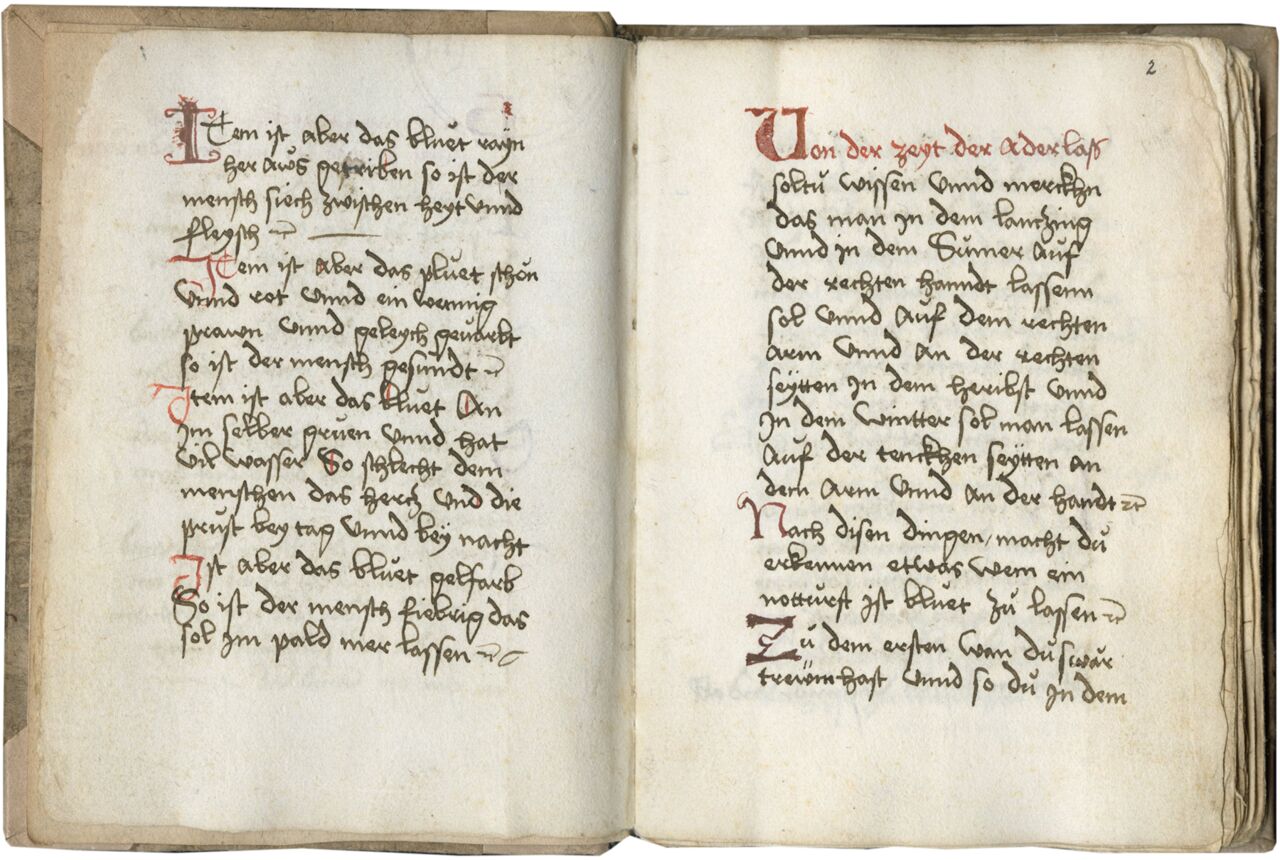 Item ist aber das bluet rayn
her aws getriben so ist der
mensch siech zwischen heyt unnd
fleysch
Item ist aber das pluet schon
Unnd rot Unnd ein wennig
prawn Unnd geleych geuarbt
so ist der mensch gesundt
Item ist aber das bluet An
im selber gruen Unnd hat
Uil wasser So schlecht dem
menschen das hercz Und die
prust bey tag Unnd bey nacht
Ist aber das bluet gelfarb
So ist der mensch fiebrig das
sol Im pald mer lassen
2
Uon der zeyt der Aderlass
soltu wissen Unnd merckhn
das man In dem lanczing
Unnd in dem Sumer Auf
der rechten hanndt lassenn
sol Unnd Auf dem rechten
Arm Unnd An der rechten
seytten In dem heribst Unnd
In dem wintter sol man lassen
Auf der tenckhen seytten An
dem Arm Unnd An der handt
Nach disen dingen, macht du
erkennen etwas wem ein
notturft ist bluet zu lassen
Zu dem ersten wan du swär
trewm hast Unnd so du In dem